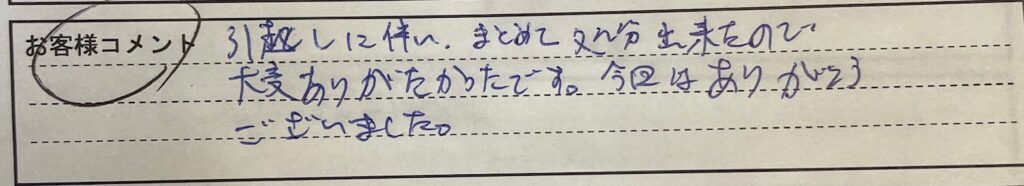 お客様コメント
引越しに伴い、まとめて処分出来たので
大変ありがたかったです。今回はありがとう
ございました。